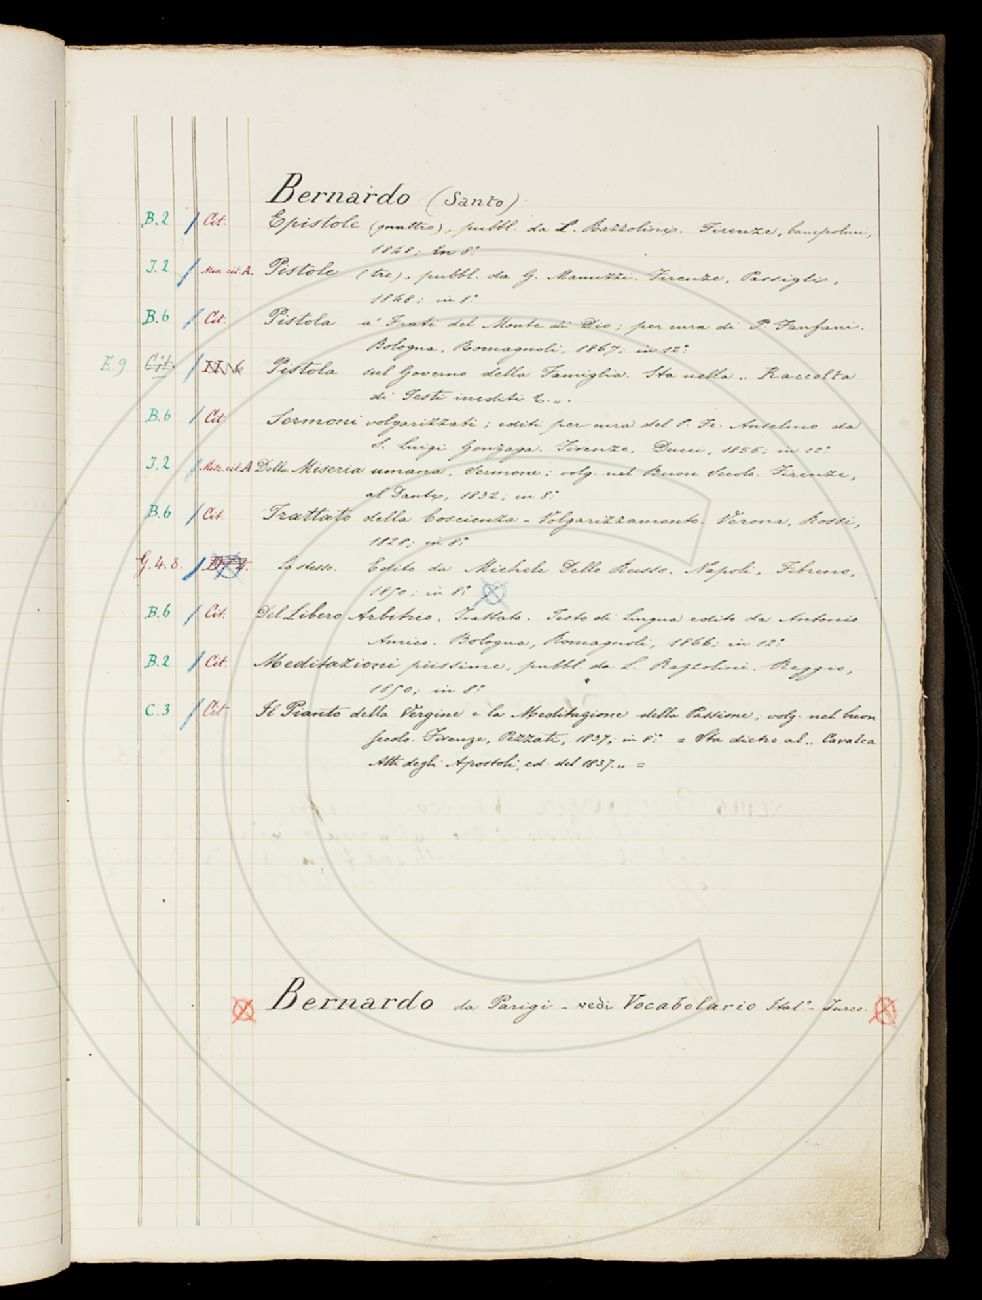 Bernardo (Santo)
B. 2 / Cit. Epistole (quattro), pubbl. da L. Razzolini. Firenze, Campolmi,
1848; in 8.°
I. 2 / Man. cit. A. Pistole (tre), pubbl. da G. Manuzzi. Firenze, Passigli,
1848; in 8.°
B. 6 / Cit. Pistola a' Frati del Monte di Dio; per cura di P. Fanfani.
Bologna, Romagnoli, 1867; in 12.°
E. 9 Cit. / Pistola sul Governo della Famiglia. Sta nella „ Raccolta
di Testi inediti &. „.
B. 6 / Cit. Sermoni volgarizzati; editi per cura del P. Fr. Anselmo da
S. Luigi Gonzaga. Firenze, Ducci, 1856; in 12.°
I. 2 / Man. cit. A Della Miseria umana, Sermone; volg. nel buon Secolo. Firenze,
al Dante, 1832; in 8.°
B. 6 / Cit. Trattato della Coscienza - Volgarizzamento. Verona, Rossi,
1828; in 8.°
G. 4. 8. / Lo stesso. Edito da Michele Dello Russo. Napoli, Fibreno,
1850; in 8.°
B. 6 / Cit. Del Libero Arbitrio, Trattato. Testo di lingua edito da Antonio
Bologna, Romagnoli, 1866; in 12.°
B. 2 / Cit. Meditazioni piissime, pubbl. da L. Razzolini. Reggio,
1850; in 8.°
C. 3 / Cit Il Pianto della Vergine e la Meditazione della Passione, volg. nel buon
secolo. Firenze, Pezzati, 1837, in 8.° = Sta dietro al „ Cavalca
Atti degli Apostoli, ed. del 1837. „ =
Bernardo da Parigi - vedi Vocabolario Ital.° - Turco.